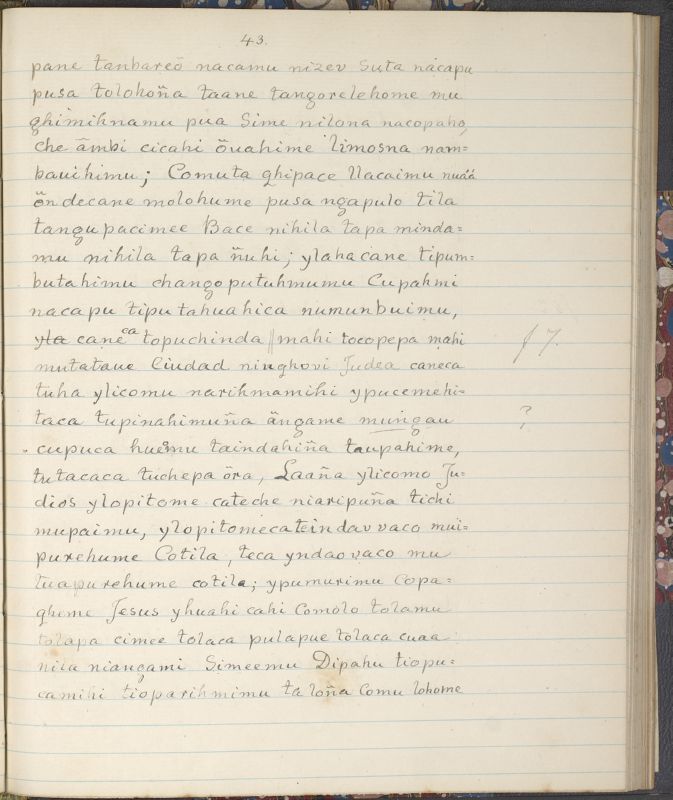 43.
pane tanbareŏ nacamu nizev Suta nácapu
pusa tolohoña taane tangorelehome mu
ghimihnamu pua Sime nilona nacopaho,
che âmbi cicahi ŏuahime limosna nam=
bauihimu; Comuta ghipace Nacaimu nuáá
ŏn decane molohume pusa ngapulo tila
tangupacimee Bace nihila tapa minda=
mu nihila tapa ñuhi; ylahacane tipum=
butahimu changoputuhmumu Cupahmi
nacapu tiputahuahica numunbuimu,
yla cane ca topuchinda || mahi tocopepa mahi
mutataue Ciudad ninghovi Judea caneca
tuha ylicomu narihmamihi ypucemehi=
taca tupinahimuña ängame mungau ?
cupuca huemu taindahiña taupahime,
tutacaca tuchepa öra, Laaña ylicomo Ju=
dios ylopitome cateche niaripuña tichi
mupaimu, ylopitomecateindavvaco mui=
purehume Cotila, teca yndaovaco mu
tuapurehume cotila; ypumurimu Copa=
ghime Jesus yhuahi cahi Comolo tolamu
tolapa cimee tolaca pulapue tolaca cuaa
nila niangami Simeemu Dipahu tiopu=
camihi tioparihmimu ta loña Comu lohome